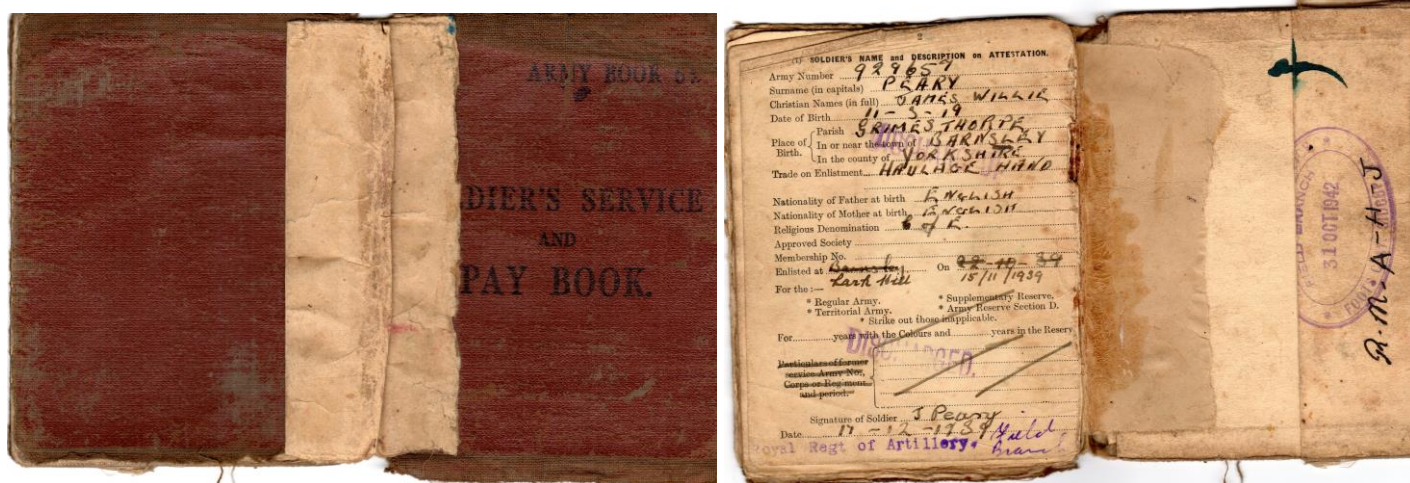 ARMY BOOK 64.
LDIER'S SERVICE
AND
PAY BOOK.
2
(1) SOLDIER'S NAME and DESCRIPTION on ATTESTATION.
Army Number 929657
Surname (in capitals) PEARY
Christian Names (in full) JAMES WILLIE
Date of Birth 11-3-19
Place of Birth. Parish GRIMESTHORPE
In or near the town of BARNSLEY
In the county of YORKSHIRE
Trade on Enlistment HAULAGE HAND
Nationality of Father at birth ENGLISH
Nationality of Mother at birth ENGLISH
Religious Denomination C of E.
Approved Society
Membership No.
Enlisted at Barnsley On
Lark Hill 15/11/1939
For the :—
* Regular Army. * Supplementary Reserve.
* Territorial Army. * Army Reserve Section D.
* Strike out those inapplicable.
For years with the Colours and years in the Reserv
DISCHARGED.
Particulars of former
service Army No.,
Corps or Regiment
and period.
Signature of Soldier J Peary
Date 17-12-1939
Royal Regt of Artillery. Field Branch
FIELD BRANCH
31 OCT 1942
R.M. A-H-J